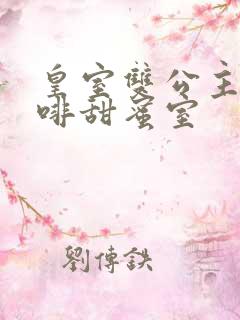 皇室雙公主
啡甜蜜室
劉傳鉄